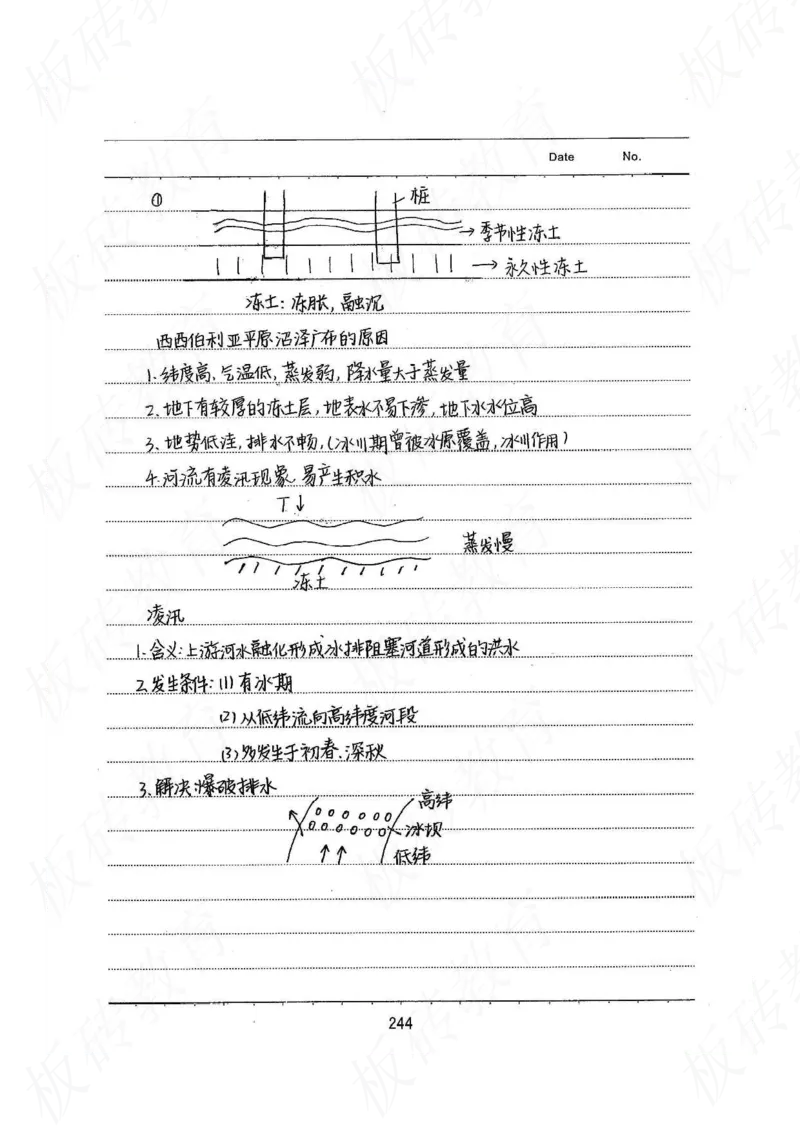 Date No.
①
桩
→季节性冻土
→永久性冻土
冻土:冻胀,融沉
西西伯利亚平原沼泽广布的原因
1.纬度高、气温低,蒸发弱,降水量大于蒸发量
2.地下有较厚的冻土层,地表水不易下渗,地下水水位高
3.地势低洼,排水不畅,(冰川期曾被冰原覆盖,冰川作用)
4.河流有凌汛现象,易产生积水
T↓
蒸发慢
冻土
凌汛
1.含义:上游河水融化形成冰排阻塞河道形成的洪水
2.发生条件:(1)有冰期
(2)从低纬流向高纬度河段
(3)多发生于初春、深秋
3.解决:爆破排水
高纬
冰坝
低纬
244
板砖教育